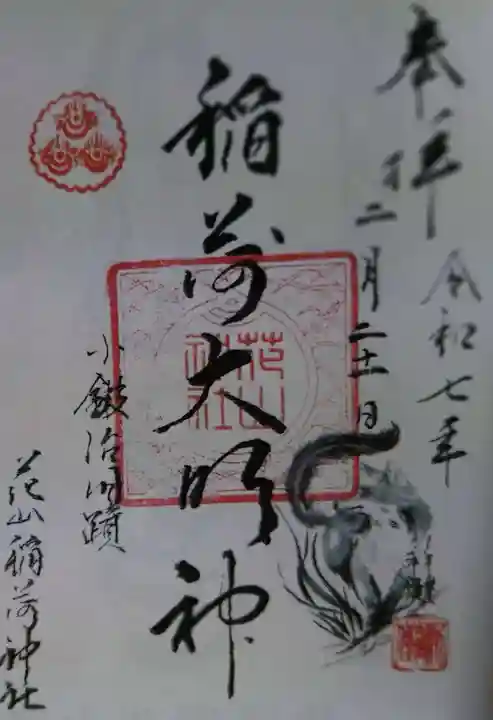 奉拝
令和七年
十二月二十一日
稲荷大明神
花山
神社
小鍛冶旧蹟
花山稲荷神社